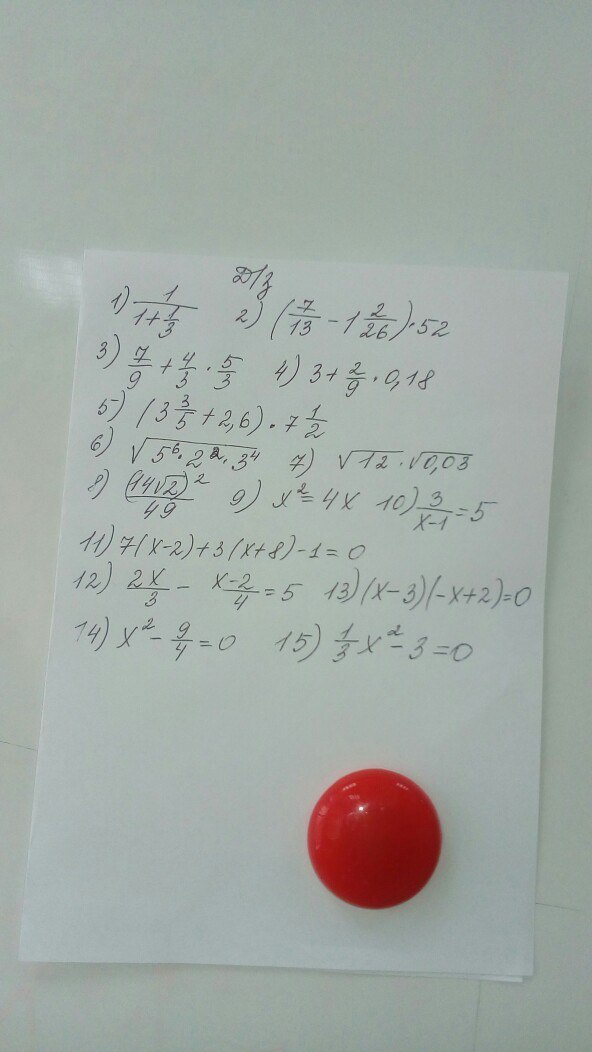 Д/з
1) 1/(1+1/3) 2) (7/13 - 1 2/26)·52
3) 7/9 + 4/3 · 5/3 4) 3 + 2/9 · 0,18
5) (3 3/5 + 2,6) · 7 1/2
6) √(5⁶·2²·3⁴) 7) √12 · √0,03
8) (14√2)²/49 9) x² = 4x 10) 3/(x-1) = 5
11) 7(x-2)+3(x+8)-1=0
12) 2x/3 - (x-2)/4 = 5 13) (x-3)(-x+2)=0
14) x² - 9/4 = 0 15) 1/3 x² - 3 = 0